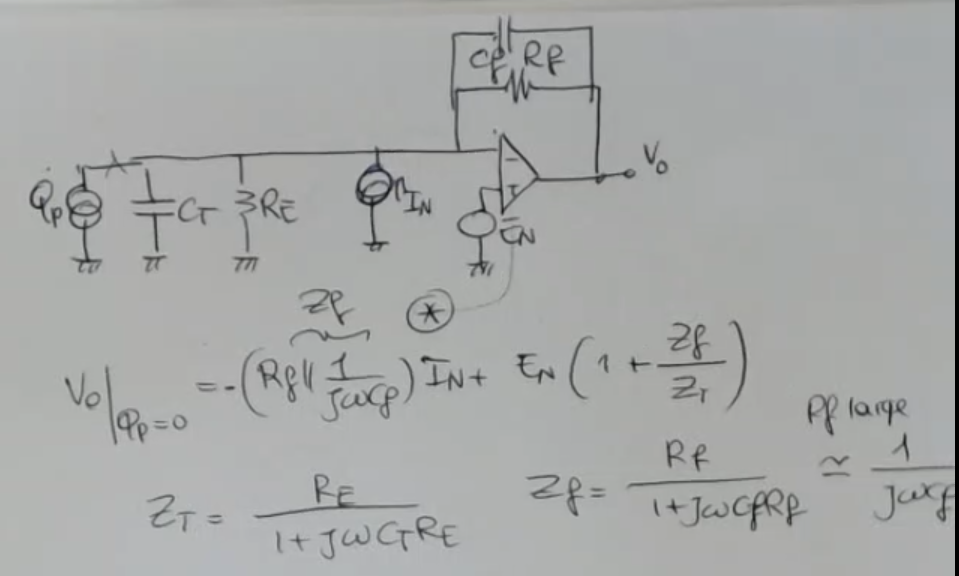 Cf Rf
Q̇p CT RE IN EN Vo
Zf *
Vo|Qp=0 = -(Rf || 1/jωCf) IN + EN (1 + Zf/ZT)
Rf large
ZT = RE/1+jωCTRE Zf = Rf/1+jωCfRf ≃ 1/jωCf